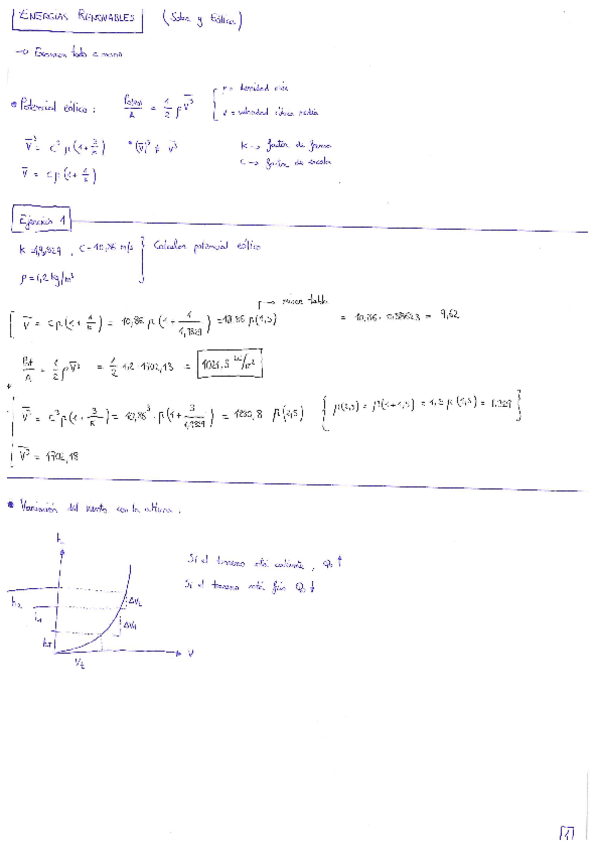 ENERGIAS RENOVABLES (Solar y Eólica)
→ Examen todo a mano
• Potencial eólico: Poten/A = 1/2 ρ V̄³ { ρ = densidad aire
v = velocidad cúbica media
V̄³ = C³ Γ(1+3/k) * (V̄)³ ≠ V̄³ K → factor de forma
V̄ = C Γ(1+1/k) C → factor de escala
Ejercicio 1
K = 1,9829, C = 10,86 m/s } Calcular potencial eólico
ρ = 1,2 kg/m³
Γ → mirar tabla
V̄ = C Γ(1+1/k) = 10,86 Γ(1+1/1,9829) = 10.86 Γ(1,5) = 10,86 · = 9,62
Pot/A = 1/2 ρ V̄³ = 1/2 1,2 · 1702,18 = 1021.3 W/m²
V̄³ = C³ Γ(1+3/k) = 10,86³ · Γ(1+3/1,9829) = 1280,8 Γ(2,5) { Γ(2,5) = Γ(1+1,5) = 1,5 Γ(1,5) = 1.329 }
V̄³ = 1702,18
• Variación del viento con la altura.
h
Si el terreno está caliente, ↑
Si el terreno está frío ↓
h₂
ΔV₂
ΔV₁
V
1